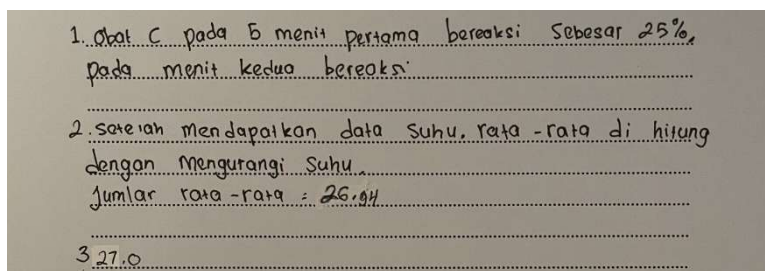 1. Obat C pada 5 menit pertama bereaksi Sebesar 25%,
pada menit kedua bereaksi
2. Setelah mendapatkan data suhu, rata-rata di hitung
dengan mengurangi suhu.
Jumlar rata-rata : 26.94
3 27.0